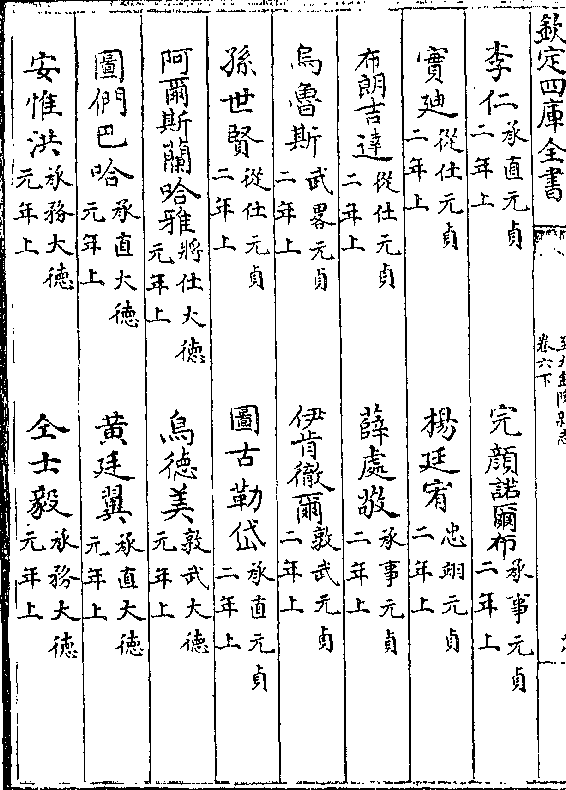 欽定四庫全書
卷六下
李仁承直元貞二年上 完顔諾爾布承事元貞二年上
實廸從仕元貞二年上 楊廷宥忠翊元貞二年上
布朗吉達從仕元貞二年上 薛處敬承事元貞二年上
烏魯斯武畧元貞二年上 伊肯徹爾敦武元貞二年上
孫世賢從仕元貞二年上 圖古勒岱承直元貞二年上
阿爾斯蘭哈雅將仕大德元年上 烏德美敦武大德元年上
圖們巴哈承直大德元年上 黃廷翼承直大德元年上
安惟洪承務大德元年上 仝士毅承務大德元年上